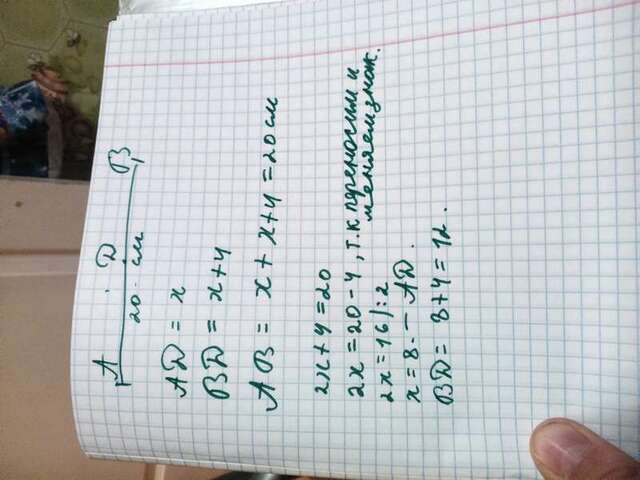 А D В
20 см
AD = x
BD = x+4
AB = x + x+4 = 20 см
2x+4=20
2x=20-4, т.к переносим и
меняем знак.
2x=16 |:2
x=8. - AD.
BD= 8+4=12.